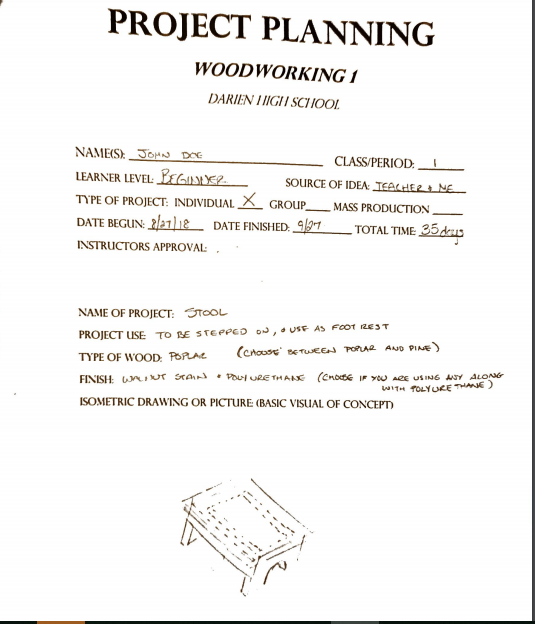 PROJECT PLANNING
WOODWORKING 1
DARIEN HIGH SCHOOL
NAME(S): JOHN DOE CLASS/PERIOD: 1
LEARNER LEVEL: BEGINNER SOURCE OF IDEA: TEACHER & ME
TYPE OF PROJECT: INDIVIDUAL X GROUP MASS PRODUCTION
DATE BEGUN: 8/27/18 DATE FINISHED: 9/27 TOTAL TIME 35 days
INSTRUCTORS APPROVAL:
NAME OF PROJECT: STOOL
PROJECT USE: TO BE STEPPED ON, & USE AS FOOT REST
TYPE OF WOOD: POPLAR (CHOOSE BETWEEN POPLAR AND PINE)
FINISH: WALNUT STAIN & POLYURETHANE (CHOOSE IF YOU ARE USING ANY ALONG
WITH POLYURETHANE)
ISOMETRIC DRAWING OR PICTURE: (BASIC VISUAL OF CONCEPT)